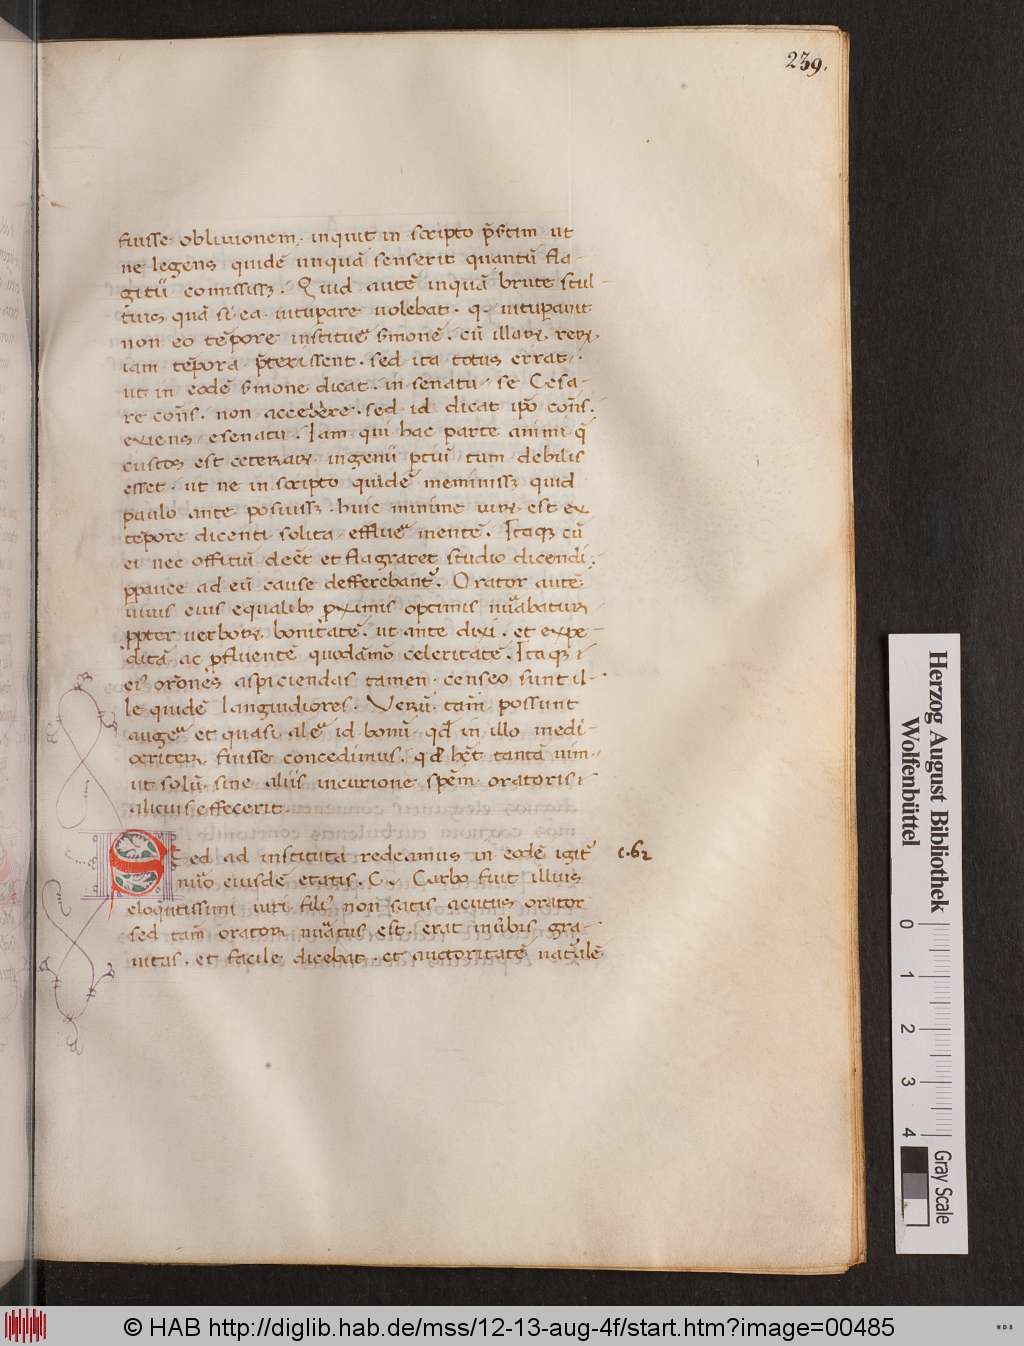 239.
fuisse obliuionem. inquit in scripto p̄s̄tim ut
ne legens quidē unquā senserit quantū fla-
gitiū comississꝫ. Quid autē inquā brute stul-
tius quā si ea uitupare uolebat. q̨ uitupauit
non eo tēpore instituē s̄monē. cū illaꝝ reꝝ
iam tēpora p̄terissent. sed ita totus errat.
ut in eodē s̄mone dicat. in senatu se Cesa-
re cons̄. non accedere. sed id dicat ip̄o cons̄.
exiens esenatu. Iam qui hac parte animi q̄
custos est ceteraꝝ ingenii ptiū tam debilis
esset. ut ne in scripto quidē meminissꝫ quid
paulo ante posuissꝫ. huic minime miꝝ est ex
tēpore dicenti solita effluē mentē. Itaqꝫ cū
ei nec offitiū deēt et flagraret studio dicendi.
ppauce ad eū cause defferebant᷑. Orator autē
uiuis eius equalibꝫ pximis optimis nūabatur
ppter uerboꝝ bonitatē. ut ante dixi. et expe-
ditā ac pfluentē quodāmō celeritatē. Itaqꝫ
ei᷑ orōnes aspiciendas tamen censeo sunt il-
le quidē languidiores. Verū tam̄ possunt
augē et quasi alē id bonū qđ in illo medi-
ocriter fuisse concedimus. qđ hēt tantā uim
ut solū sine aliis incurione spēm oratoris
alicuis effecerit.
Sed ad instituta redeamus in eodē igit᷑ c. 62
nūo eiusdē etatis. C. Carbo fuit illius
eloq̄ntissimi uiri fili᷑ non satis acutus orator
sed tam̄ orator nūatus est. erat inūbis gra-
uitas. et facile dicebat. et auctoritatē natūlē
Herzog August Bibliothek
Wolfenbüttel
0 1 2 3 4
Gray Scale
© HAB http://diglib.hab.de/mss/12-13-aug-4f/start.htm?image=00485